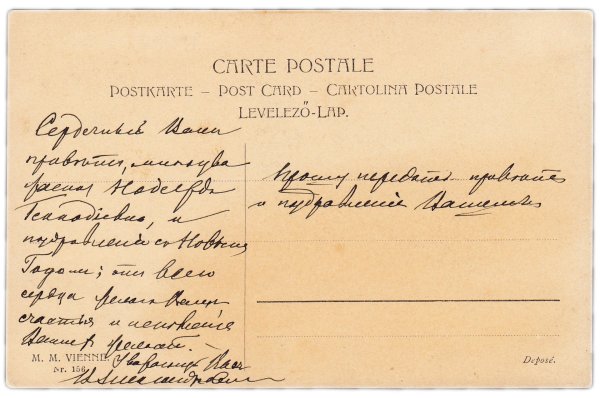 CARTE POSTALE
POSTKARTE – POST CARD – CARTOLINA POSTALE
LEVELEZŐ-LAP.
Сердечный Вам
привѣтъ,
Геннадіевна, и
поздравленіе съ Новымъ
Годомъ; отъ всего
сердца желаю Вамъ
счастья и исполненія
Вашихъ желаній.
Уважающій Васъ
Прошу передать привѣтъ
и поздравленіе Вашимъ
M. M. VIENNE
Nr. 156
Deposé.